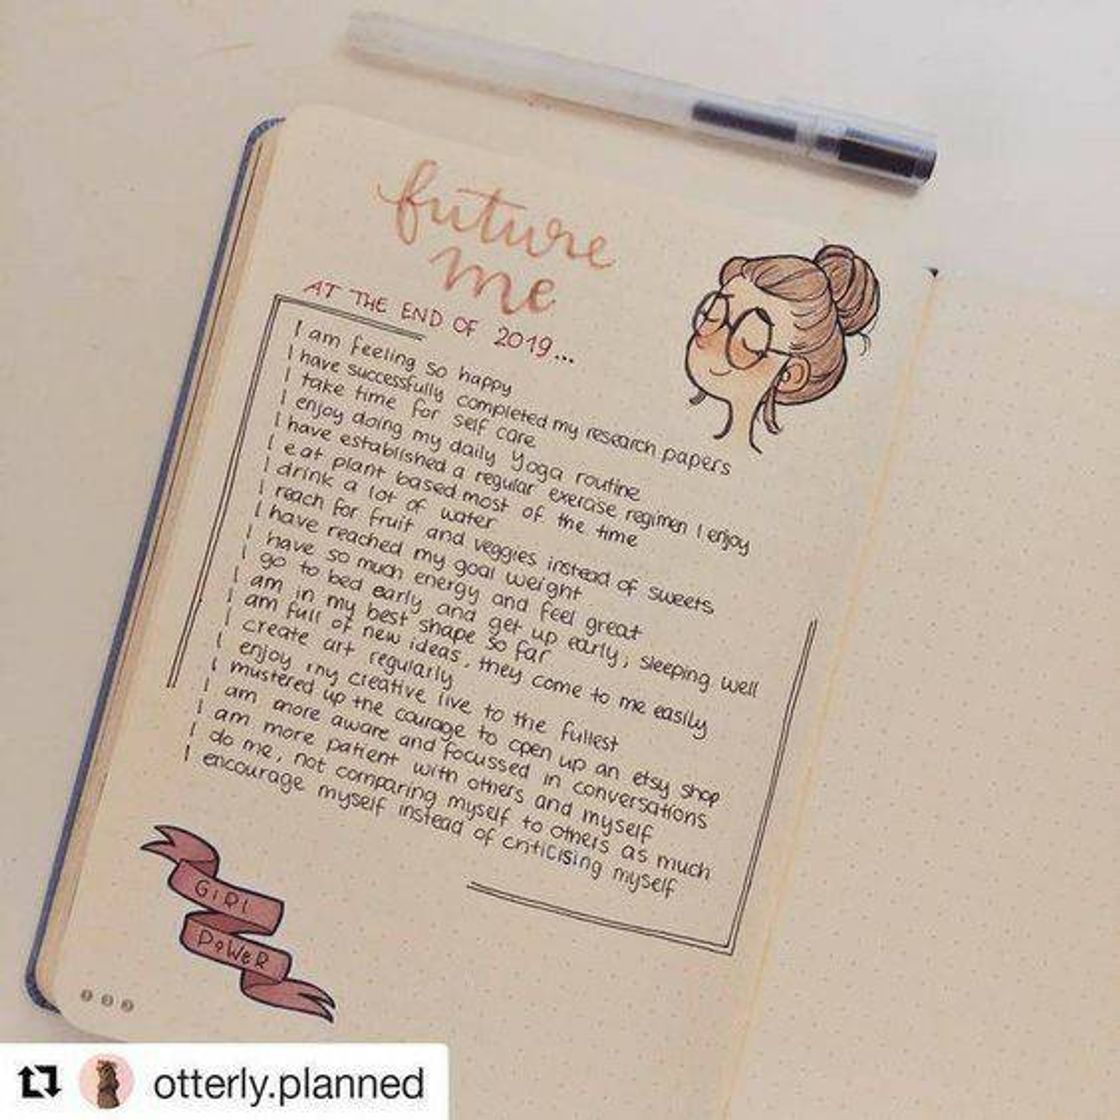 future
me
AT THE END OF 2019...
I am feeling so happy
I have successfully completed my research papers
I take time for self care
I enjoy doing my daily yoga routine
I have established a regular exercise regimen I enjoy
I eat plant based most of the time
I drink a lot of water
I reach for fruit and veggies instead of sweets
I have reached my goal weight
I have so much energy and feel great
I go to bed early and get up early, sleeping well
I am in my best shape so far
I am full of new ideas, they come to me easily
I create art regularly
I enjoy my creative live to the fullest
I mustered up the courage to open up an etsy shop
I am more aware and focussed in conversations
I am more patient with others and myself
I do me, not comparing myself to others as much
I encourage myself instead of criticising myself
GIRL
POWER
otterly.planned